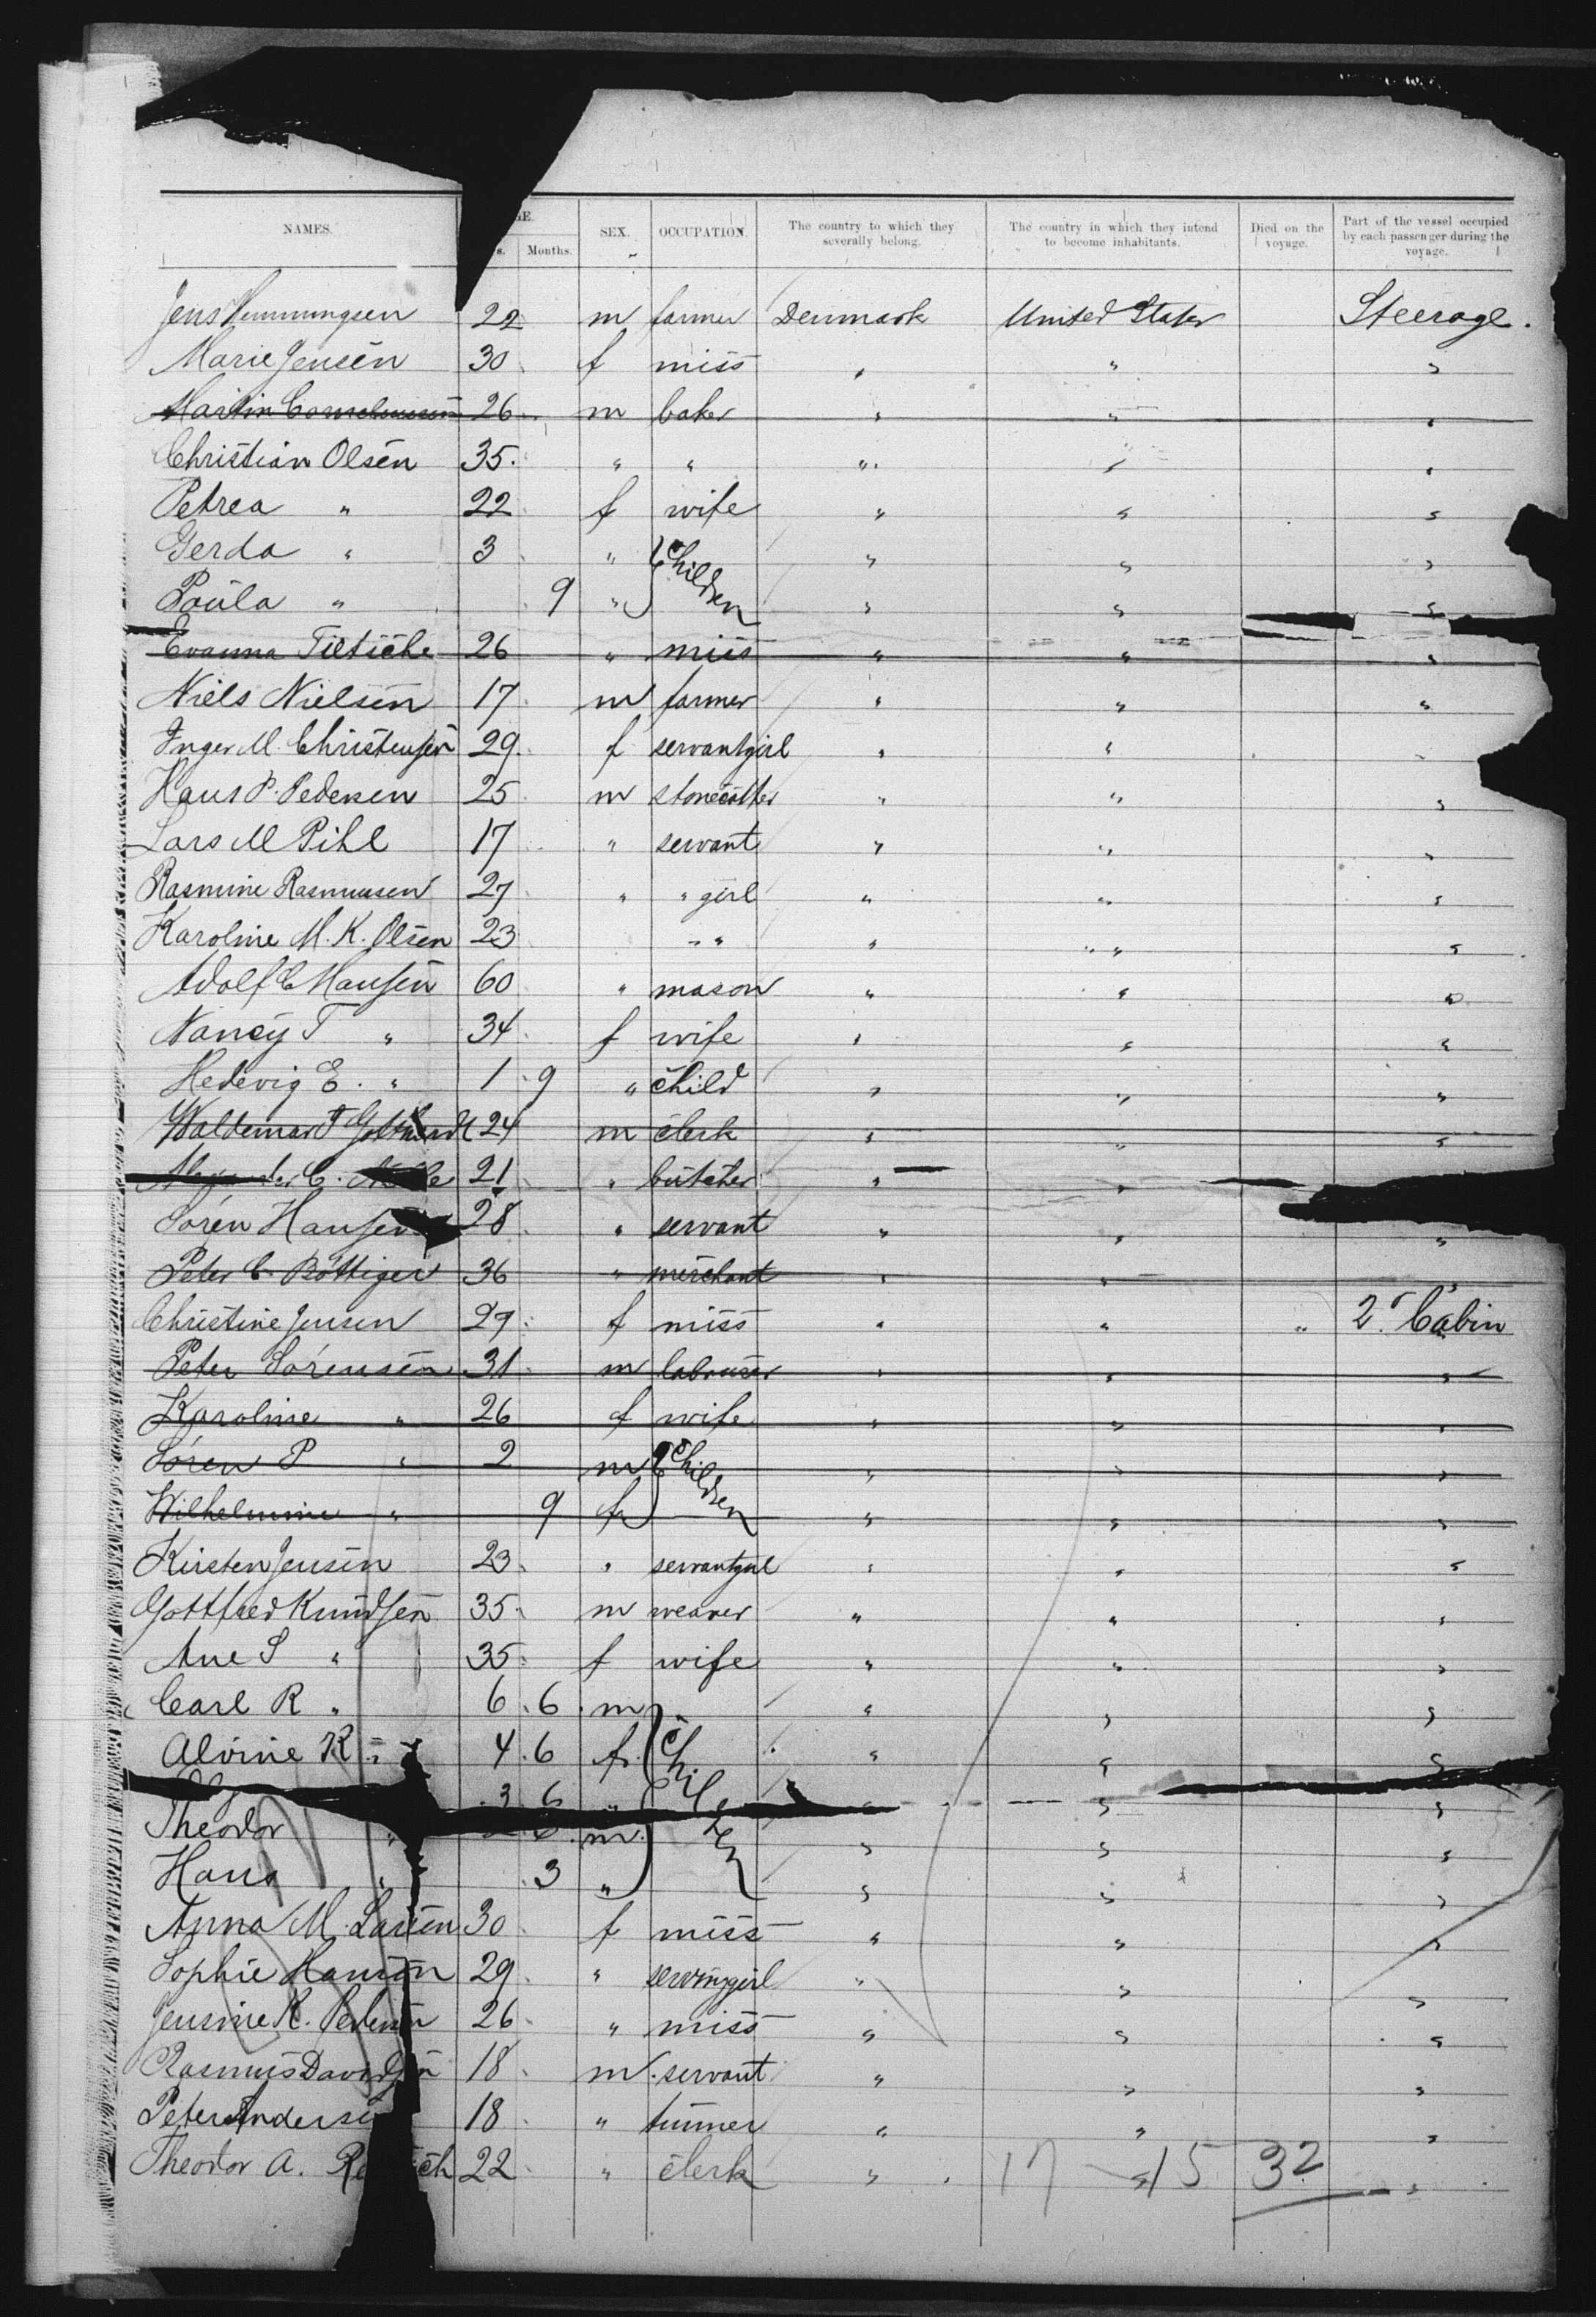 NAMES. GE. SEX. OCCUPATION. The country to which they severally belong. The country in which they intend to become inhabitants. Died on the voyage. Part of the vessel occupied by each passenger during the voyage.
s. Months.
Jens Hemmingsen 22 m farmer Denmark United States Steerage.
Marie Jensen 30 f miss " " "
Martin Corneliussen 26 m baker " " "
Christian Olsen 35. " " " " "
Petrea " 22 f wife " " "
Gerda " 3 " Children " " "
Paula " 9 " " " "
Evanna Tietsche 26 " miss " " "
Niels Nielsen 17 m farmer " " "
Inger M. Christensen 29 f servantgirl " "
Hans P. Pedersen 25 m stonecutter " " "
Lars M Pihl 17 " servant " " "
Rasmine Rasmussen 27 " " girl " " "
Karoline M. K. Olsen 23 " " " " "
Adolf C Hansen 60 " mason " " "
Nancy T " 34 f wife " " "
Hedevig E. " 1 9 " child " " "
Waldemar F 24 m clerk " " "
C. 21 " butcher " "
Sören Hansen 28 " servant " " "
Peter C. Böttiger 36 " merchant " " "
Christine Jensen 29 f miss " " " 2. Cabin
Peter Sörensen 31 m labourer " " "
Karoline " 26 f wife " " "
Sören P " 2 m Children " " "
Wilhelmine " 9 f " " "
Kirsten Jensen 23 " servantgirl " " "
Gottfred Knudsen 35 m weaver " " "
Ane S " 35 f wife " " "
Carl R " 6 6 m " " "
Alvine K " 4 6 f. Children " " "
3 6 " " " "
Theodor " m. " " "
Hans " 3 " " " "
Anna M. Larsen 30 f miss " " "
Sophie Hansen 29 " servinggirl " " "
Jensine K. Pedersen 26 " miss " " "
Rasmus Davidsen 18 m servant " " "
Peter Anders 18 " " " "
Theodor A. 22 " clerk " " "
17 15 32